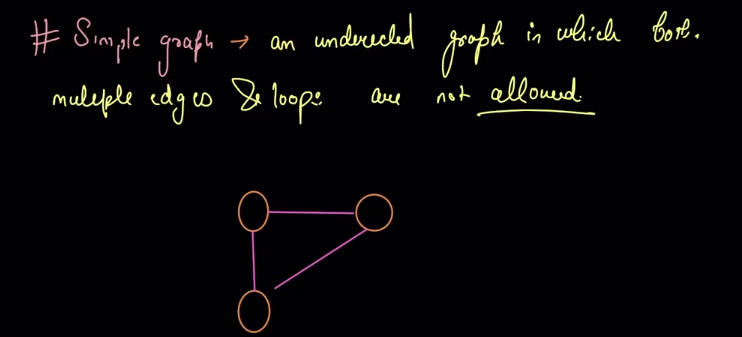 # Simple graph → an undirected graph in which both
multiple edges & loops are not allowed.